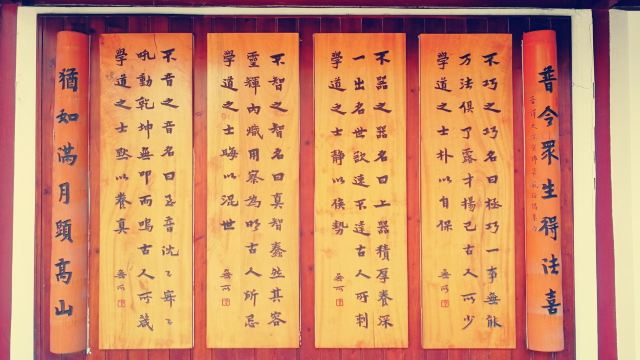 普令眾生得法喜
不巧之巧名曰極巧一事無能
万法俱了露才揚己古人所少
學道之士朴以自保
不器之器名曰上器積厚養深
一出名世欲速不達古人所刺
學道之士靜以俟勢
不智之智名曰真智蠢然其容
靈輝內熾用察為明古人所忌
學道之士晦以混世
不音之音名曰至音沈〻寂〻
吼動乾坤無叩而鳴古人所箴
學道之士默以養真
猶如滿月顯高山